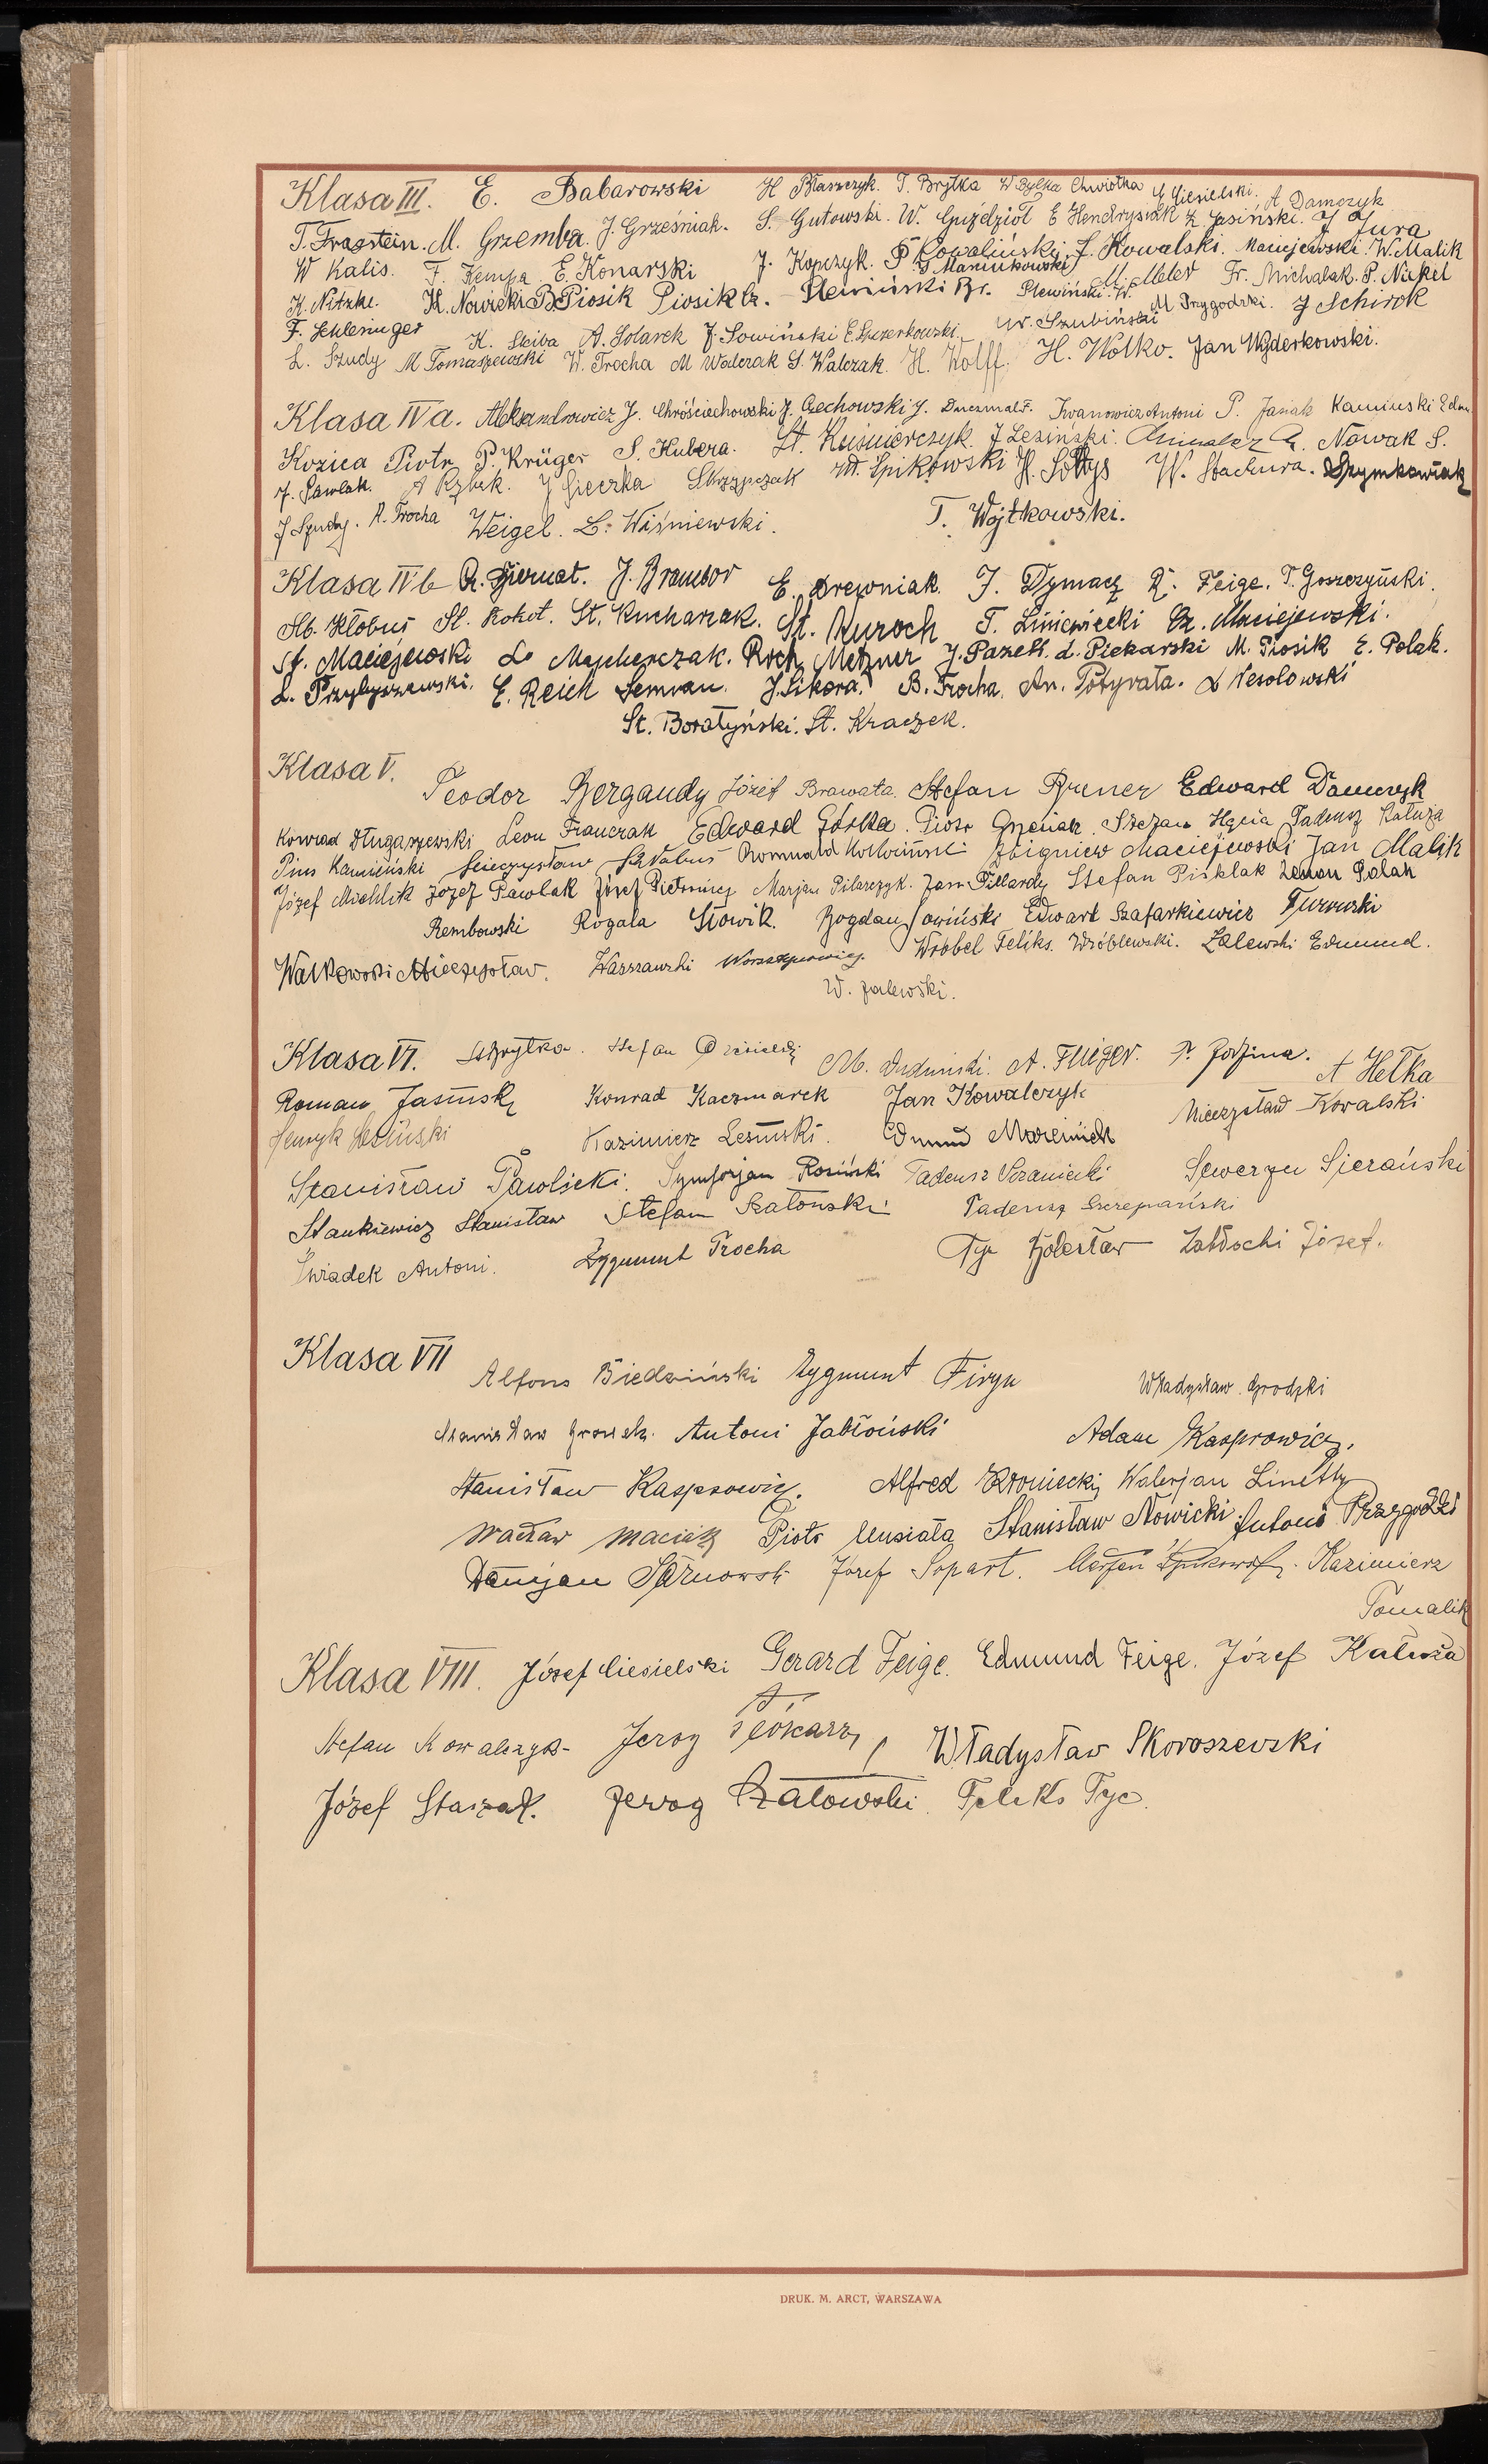 Klasa III. E. Babarowski H Błaszczyk. T. Brytka W Dylka Chwiołka J Ciesielski. A Damczyk
T. Fragstein. M. Grzemba. J. Grześniak. S. Gutowski. W. Guździoł E Hendrysiak Z Jasiński. J Jura
W Kalis. F. Kempa E. Konarski J. Kopczyk. P Kowaliński. S. Kowalski. Maciejewski. W. Malik
K. Nitzke. H. Nowicki B. Piosik Piosik Cz. Plewiński Br. S Maniukowski Plewiński. W. M. Meler Fr. Michalak. P. Nickel
F. Schlesinger K. Skiba A. Solarek J. Sowiński E. Szczerkowski W. Szubiński M. Przygodzki. J Schirok
L. Szudy M Tomaszewski W. Trocha M Walczak S. Walczak. H. Wolff. H. Wolko. Jan Wyderkowski.
Klasa IV a. Aleksandrowicz J. Chróściechowski J. Czechowski J. Duczmal F. Iwanowicz Antoni P. Jasiak Kamiński Edm.
Kozica Piotr P. Krüger S. Kubera. St. Kuśnierczyk. J Lesiński. Nowak S.
J. Pawlak. A Rybak. J Sieczka Skrzypczak W. Spikowski H. Sołtys W. Stachura. Szymkowiak
J Szudy. A. Trocha Weigel. L. Wiśniewski. T. Wojtkowski.
Klasa IV b R. Biernat. J. Brambor E. Drewniak. J. Dymacz R. Feige. T. Goszczyński.
Kłobus Sl. Kokot. St. Kucharzak. St. Kuroch T. Liniewiecki Cz. Maciejewski.
St. Maciejewski L. Majcherczak. Roch Metzner J. Pazełt. L. Piekarski M. Piosik E. Polak.
L. Przybyszewski. E. Reich Semrau. J. Sikora. B. Trocha. An. Potyrała. L Wesołowski
St. Boratyński. St. Kraczek.
Klasa V. Teodor Bergandy Józef Brawata. Stefan Brener Edward Damczyk
Konrad Długaszewski Leon Franczak Edward Górka. Piotr Grzesiak. Szczepan Hęcia Tadeusz Kałuża
Pius Kamieński Mieczysław Romuald Zbigniew Maciejewski Jan Malik
Józef Michlik Józef Pawlak Józef Marjan Pilarczyk. Jan Pillardy Stefan Pisklak Zenon Polak
Rembowski Rogala Słowik. Bogdan Sowiński Edward Szafarkiewicz Turowski
Walkowski Mieczysław. Warszawski Wawrzynowicz. Wróbel Feliks. Wróblewski. Zalewski Edmund.
W. Zalewski.
Klasa VI. S. Brytka. Stefan M. Dudziński. A. Fliger. P. Godzina. A Hełka
Roman Jasiński Konrad Kaczmarek Jan Kowalczyk Mieczysław Kowalski
Henryk Kazimierz Lesiński. Edmund Marciniak
Stanisław Pawlicki. Symforjan Rosiński Tadeusz Seweryn Sierański
Stankiewicz Stanisław Stefan Szatoński Tadeusz Szczepański
Świadek Antoni. Zygmunt Trocha Tyc Bolesław Zabłocki Józef.
Klasa VII Alfons Biedziński Zygmunt Firyn Władysław Grodzki
Stanisław Antoni Jabłoński Adam Kasprowicz.
Stanisław Kasprowicz. Alfred Kroniecki Walerjan Linetty
Wacław Maciak Piotr Musiała Stanisław Nowicki. Antoni Przygodzki
Damjan Sarnowski Józef Sopart. Marjan Kazimierz
Tomalik
Klasa VIII. Józef Ciesielski Gerard Feige. Edmund Feige. Józef Kałuża
Stefan Kowalczyk Jerzy Piekarz, Władysław Skoroszewski
Józef Staszak. Jerzy Szałowski. Feliks Tyc.
DRUK. M. ARCT, WARSZAWA